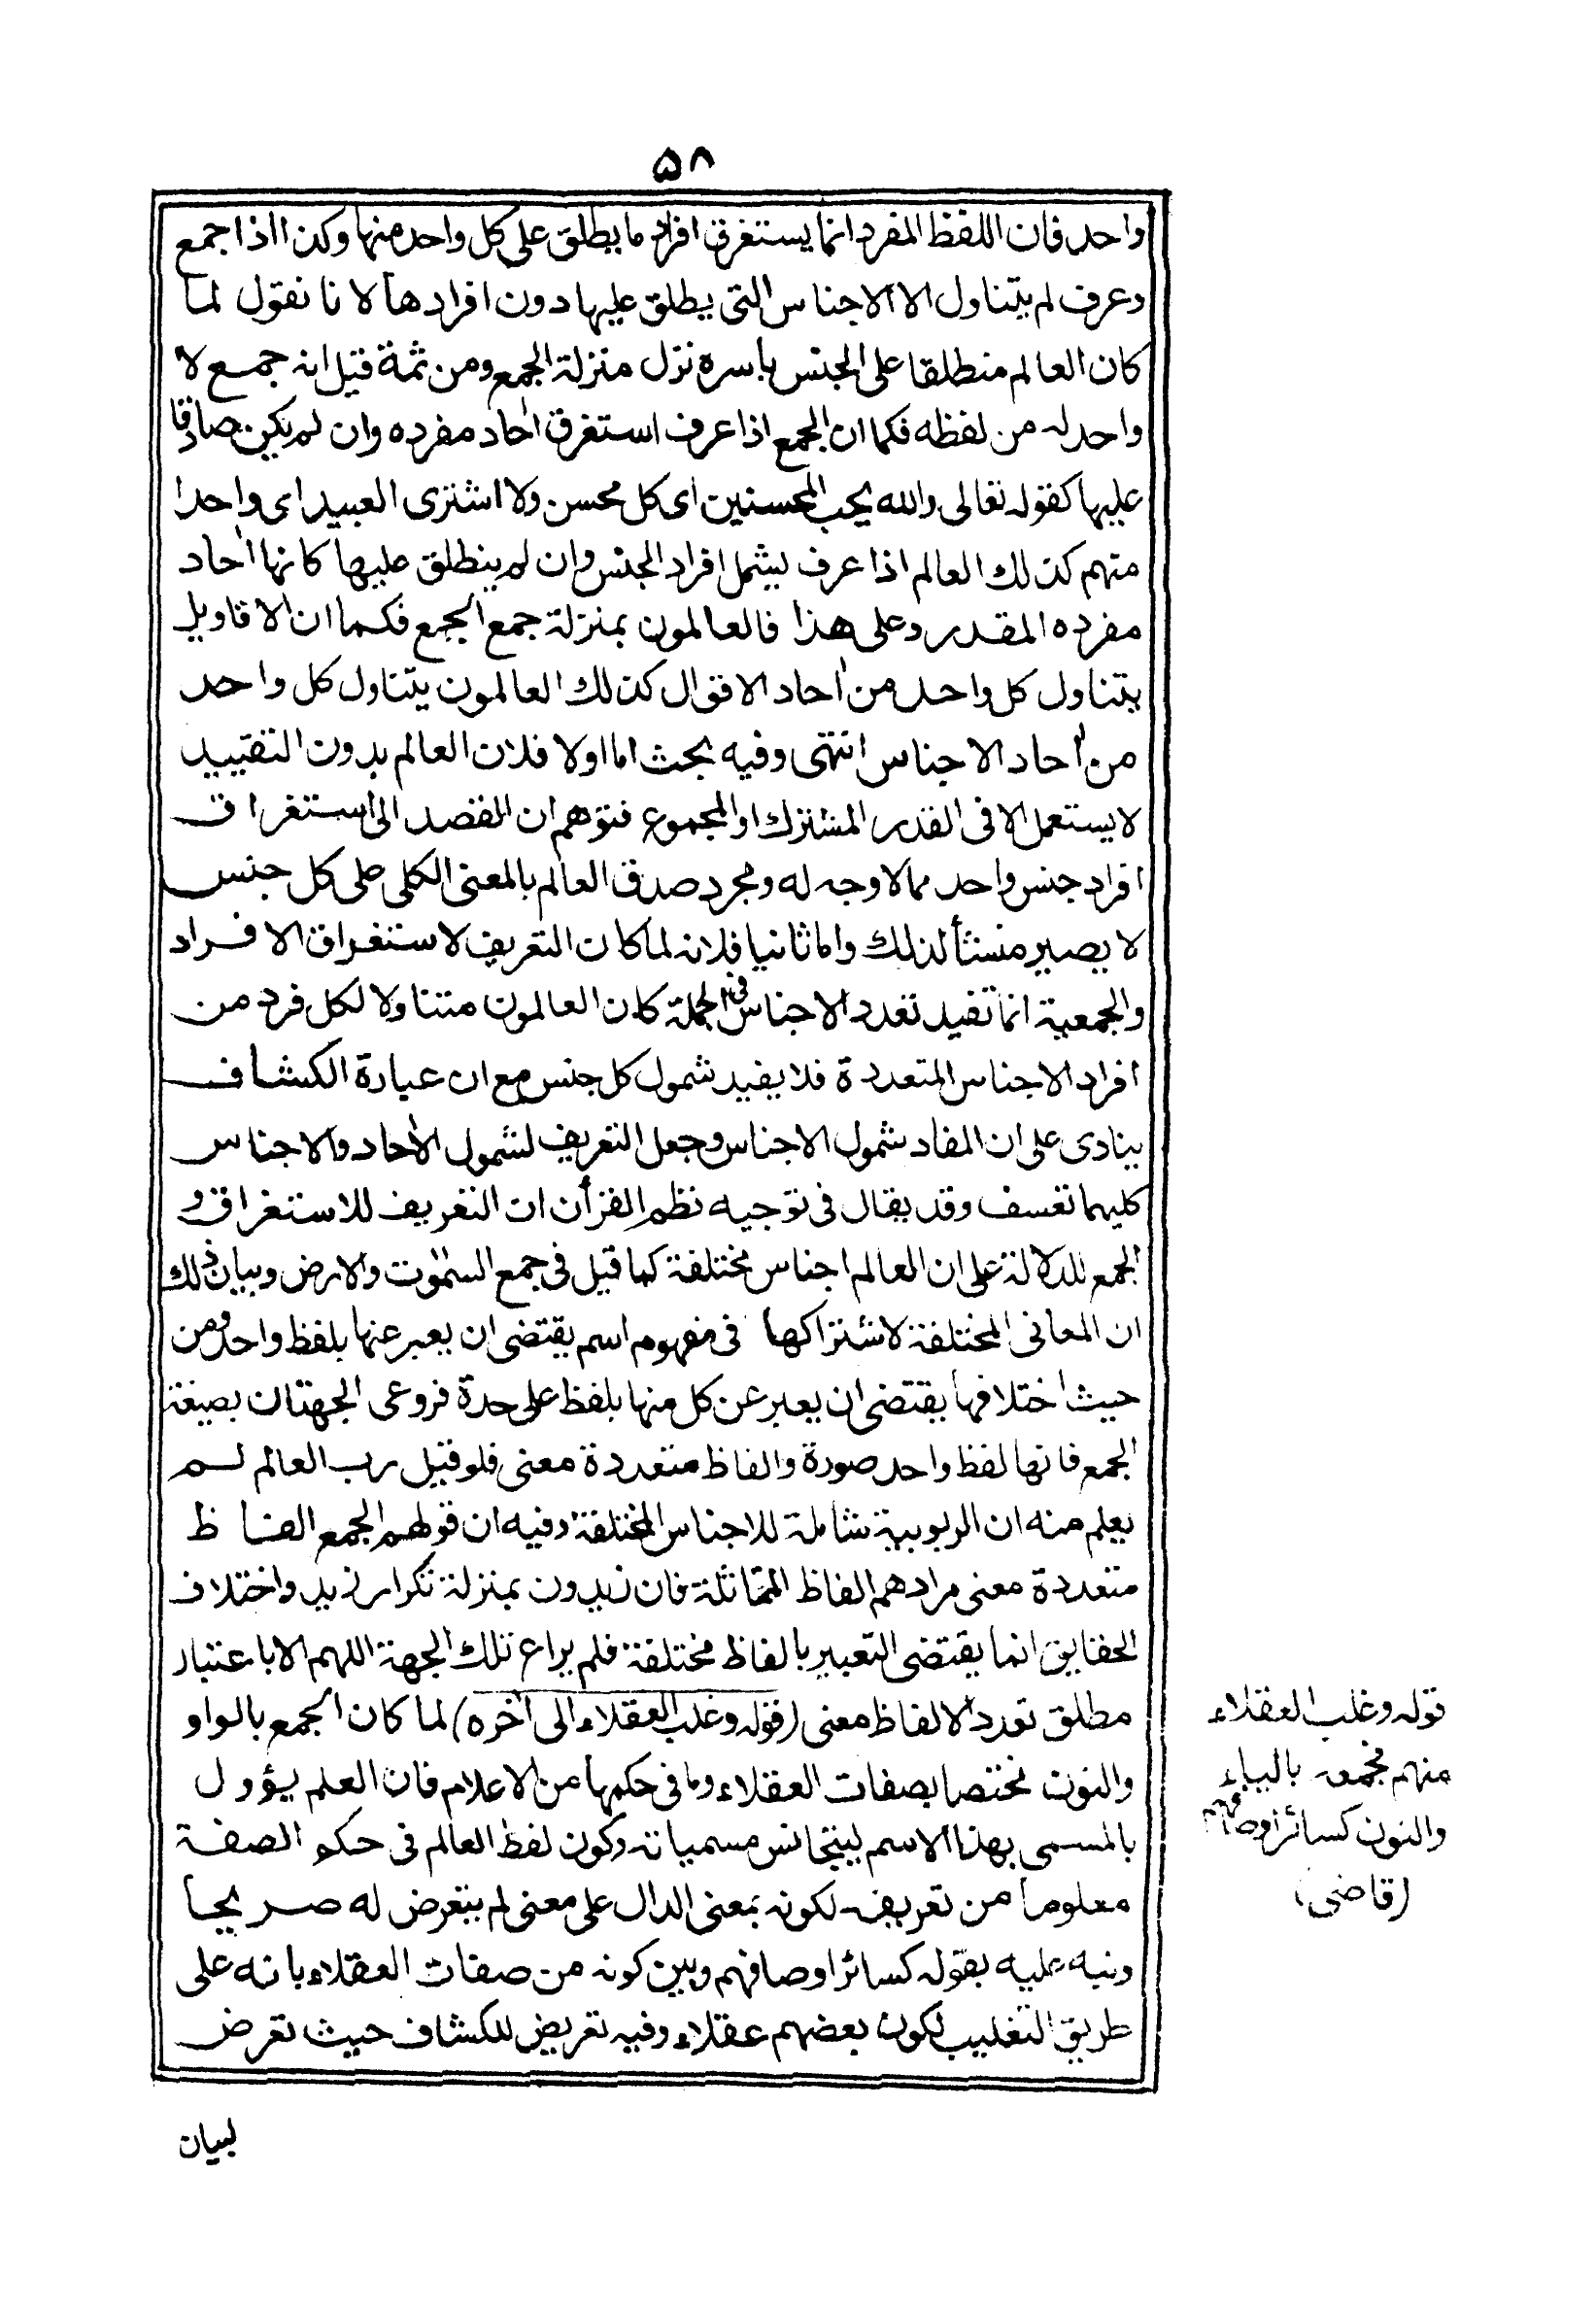 ٥٨
واحد فان اللفظ المفرد انما يستغرق افراد ما يطلق على كل واحد منها وكذا اذا جمع
وعرف لم يتناول الا الاجناس التى يطلق عليها دون افرادها لا نا نقول لما
كان العالم منطلقا على الجنس باسره نزل منزلة الجمع ومن ثمة قيل انه جمع لا
واحد له من لفظه فكما ان الجمع اذا عرف استغرق اٰحاد مفرده وان لم يكن صادقا
عليها كقوله تعالى والله يحب المحسنين اى كل محسن ولا اشترى العبيد اى واحدا
منهم كذلك العالم اذا عرف يشمل افراد الجنس وان لم ينطلق عليها كانها اٰحاد
مفرده المقدر وعلى هذا فالعالمون بمنزلة جمع الجمع فكما ان الاقاويل
يتناول كل واحد من اٰحاد الاقوال كذلك العالمون يتناول كل واحد
من اٰحاد الاجناس انتهى وفيه بحث اما اولا فلان العالم بدون التقييد
لا يستعمل الا فى القدر المشترك او المجموع فتوهم ان القصد الى استغراق
افراد جنس واحد مما لا وجه له ومجرد صدق العالم بالمعنى الكلى على كل جنس
لا يصير منشأ لذلك واما ثانيا فلانه لما كان التعريف لاستغراق الافراد
والجمعية انما تفيد تعدد الاجناس فى الجملة كان العالمون متناولا لكل فرد من
افراد الاجناس المتعددة فلا يفيد شمول كل جنس مع ان عبارة الكشاف
ينادى على ان المفاد شمول الاجناس وجعل التعريف لشمول الاٰحاد والاجناس
كليهما تعسف وقد يقال فى توجيه نظم القرأن ان التعريف للاستغراق و
الجمع للدلالة على ان العالم اجناس مختلفة كما قيل فى جمع السمٰوٰت والارض وبيان ذلك
ان المعانى المختلفة لاشتراكها فى مفهوم اسم يقتضى ان يعبر عنها بلفظ واحد ومن
حيث اختلافها يقتضى ان يعبر عن كل منها بلفظ على حدة فروعى الجهتان بصيغة
الجمع فانها لفظ واحد صورة والفاظ متعددة معنى فلو قيل رب العالم لم
يعلم منه ان الربوبية شاملة للاجناس المختلفة وفيه ان قولهم الجمع الفاظ
متعددة معنى مرادهم الفاظ المتماثلة فان زيدون بمنزلة تكرار زيد واختلاف
الحقايق انما يقتضى التعبير بالفاظ مختلفة فلم يراع تلك الجهة اللهم الا باعتبار
مطلق تعدد الالفاظ معنى (قوله وغلب العقلاء الى اٰخره) لما كان الجمع بالواو
والنون مختصا بصفات العقلاء وما فى حكمها من الاعلام فان العلم يؤول
بالمسمى بهذا الاسم ليتجانس مسمياته وكون لفظ العالم فى حكم الصفة
معلوما من تعريفه لكونه بمعنى الدال على معنى لم يتعرض له صريحا
ونبه عليه بقوله كسائر اوصافهم وبين كونه من صفات العقلاء بانه على
طريق التغليب لكون بعضهم عقلاء وفيه تعريض للكشاف حيث تعرض
لبيان
قوله وغلب العقلاء
منهم فجمعه بالياء
والنون كسائر اوصافهم
(قاضى)